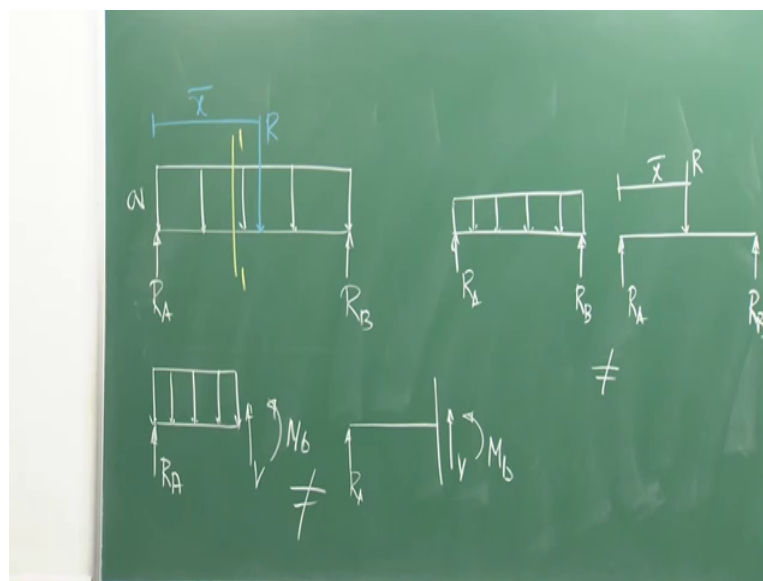 x̄
R
1
R_A
R_B
1
R_A
R_B
x̄
R
R_A
≠
R_A
V
M_b
≠
R_A
V
M_b